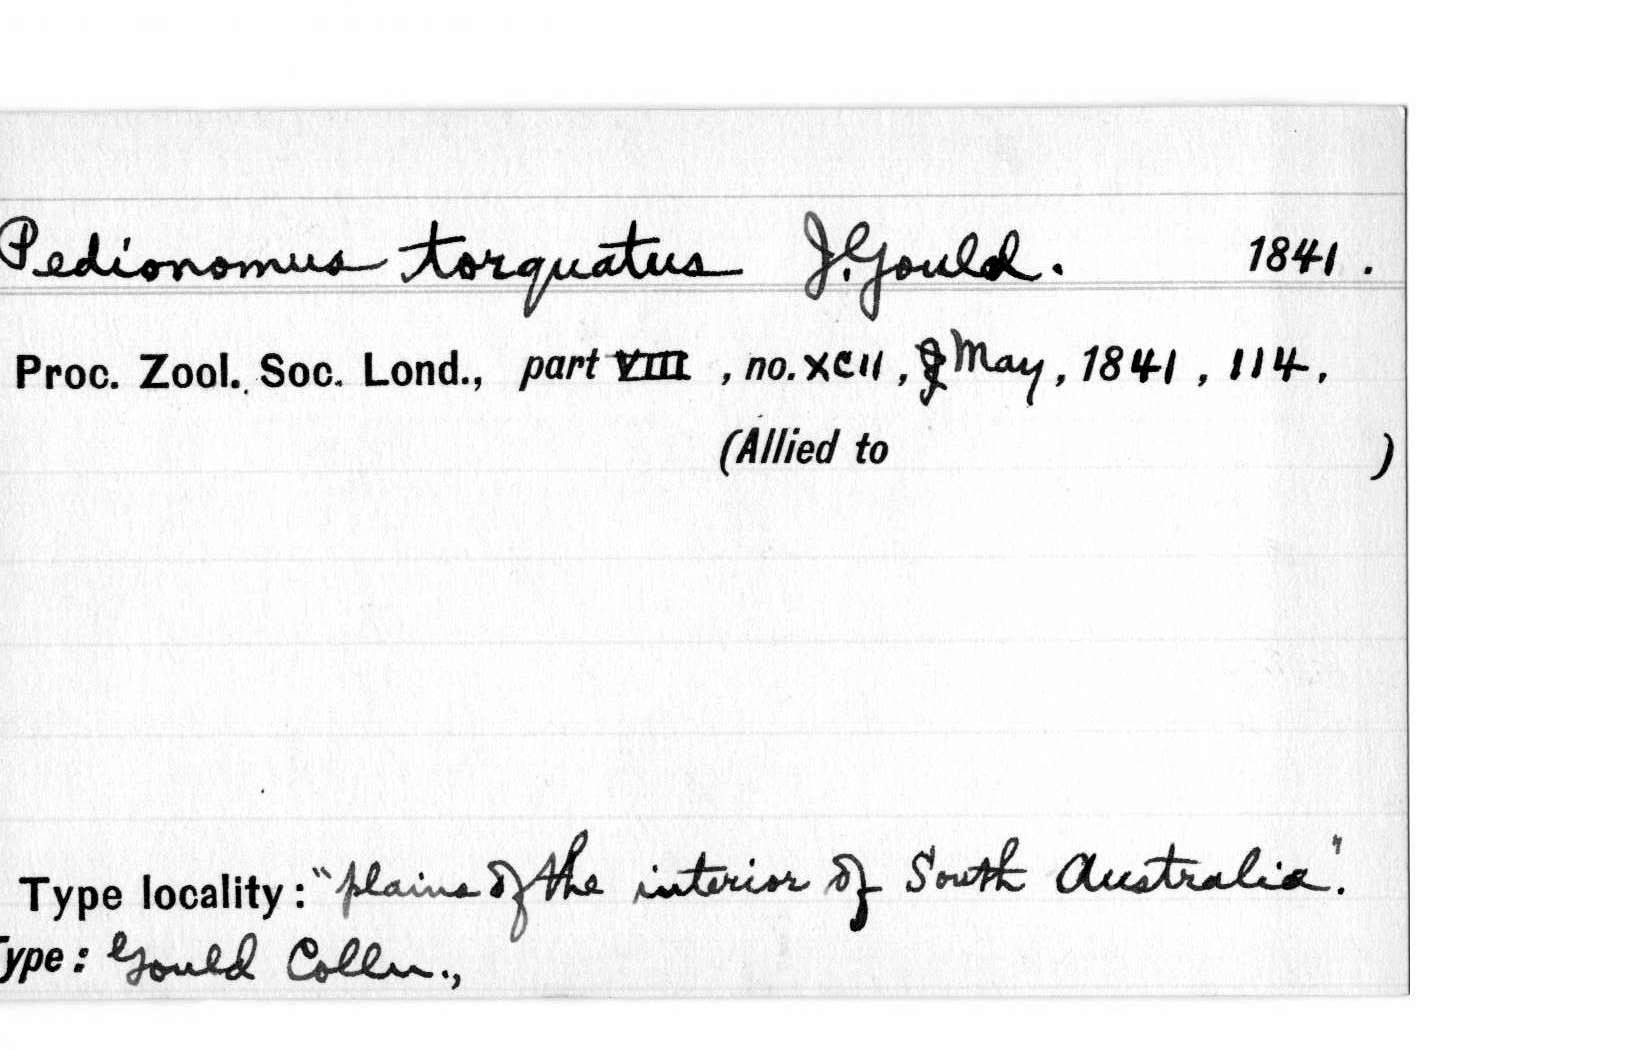 Pedionomus torquatus J. Gould. 1841.
Proc. Zool. Soc. Lond., part VIII, no. XCII, May, 1841, 114.
(Allied to )
Type locality: "plains of the interior of South Australia".
Type: Gould Colln.,